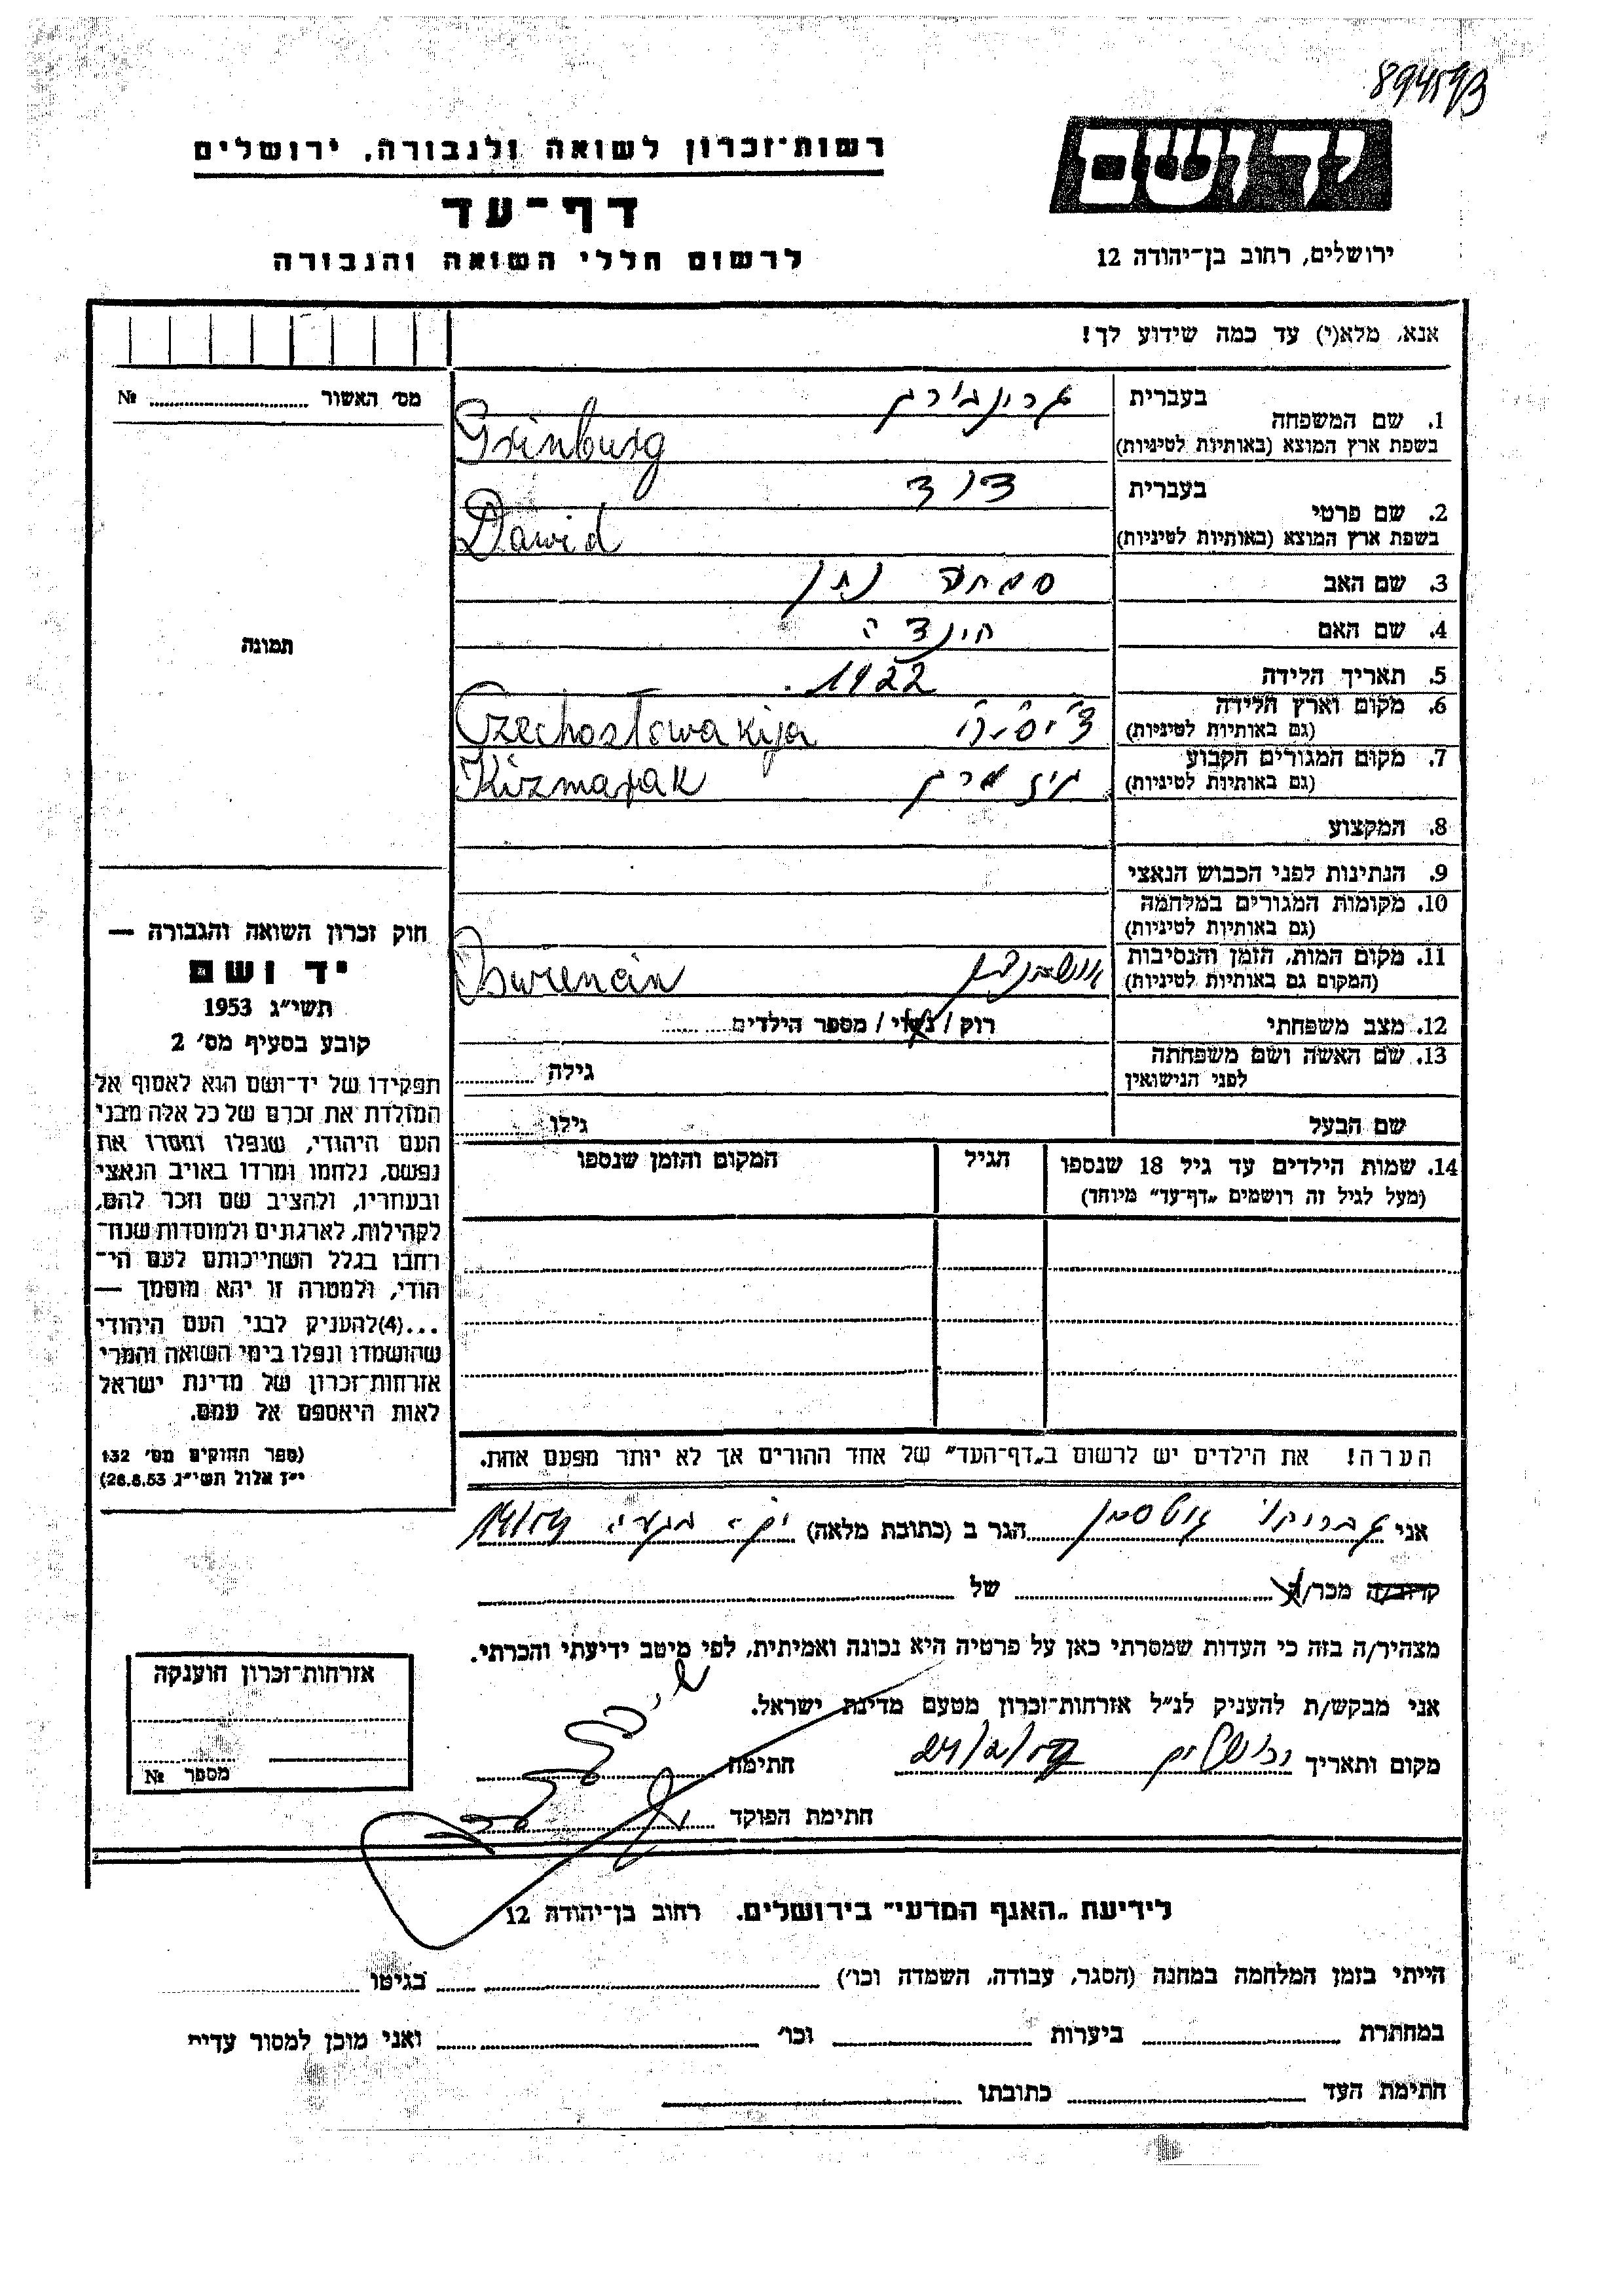 894593
יד ושם
ירושלים, רחוב בן־יהודה 12
רשות־זכרון לשואה ולגבורה, ירושלים
דף־עד
לרשום חללי השואה והגבורה
אנא, מלא(י) עד כמה שידוע לך!
מס׳ האשור № 
1. שם המשפחה
בעברית גרינבורג
בשפת ארץ המוצא (באותיות לטיניות) Grinburg
2. שם פרטי
בעברית דוד
בשפת ארץ המוצא (באותיות לטיניות) Dawid
3. שם האב שמחה נתן
4. שם האם הינדה
5. תאריך הלידה 1922.
6. מקום וארץ הלידה
(גם באותיות לטיניות) Czechostowakija
7. מקום המגורים הקבוע
(גם באותיות לטיניות) Kizmarak
8. המקצוע
9. הנתינות לפני הכבוש הנאצי
10. מקומות המגורים במלחמה
(גם באותיות לטיניות)
11. מקום המות, הזמן והנסיבות
(המקום גם באותיות לטיניות)
12. מצב משפחתי רוק / נשוי / מספר הילדים
13. שם האשה ושם משפחתה
לפני הנישואין גילה
שם הבעל גילו
14. שמות הילדים עד גיל 18 שנספו הגיל המקום והזמן שנספו
(מעל לגיל זה רושמים „דף־עד״ מיוחד)
הערה! את הילדים יש לרשום ב„דף־העד״ של אחד ההורים אך לא יותר מפעם אחת.
תמונה
חוק זכרון השואה והגבורה —
יד ושם
תשי״ג 1953
קובע בסעיף מס׳ 2
תפקידו של יד־ושם הוא לאסוף אל
המולדת את זכרם של כל אלה מבני
העם היהודי, שנפלו ומסרו את
נפשם, נלחמו ומרדו באויב הנאצי
ובעוזריו, ולהציב שם וזכר להם,
לקהילות, לארגונים ולמוסדות שנח־
רבו בגלל השתייכותם לעם הי־
הודי, ולמטרה זו יהא מוסמך —
...(4)להעניק לבני העם היהודי
שהושמדו ונפלו בימי השואה והמרי
אזרחות־זכרון של מדינת ישראל
לאות היאספם אל עמם.
(ספר החוקים מס׳ 132
י״ז אלול תשי״ג 28.8.53)
אני הגר ב (כתובת מלאה)
קרוב/ה מכר/ה של
מצהיר/ה בזה כי העדות שמסרתי כאן על פרטיה היא נכונה ואמיתית, לפי מיטב ידיעתי והכרתי.
אני מבקש/ת להעניק לנ״ל אזרחות־זכרון מטעם מדינת ישראל.
מקום ותאריך ירושלים חתימה
חתימת הפוקד
אזרחות־זכרון הוענקה
מספר №
לידיעת „האגף המדעי״ בירושלים, רחוב בן־יהודה 12
הייתי בזמן המלחמה במחנה (הסגר, עבודה, השמדה וכו׳) בגיטו
במחתרת ביערות וכו׳ ואני מוכן למסור עדות
חתימת העד כתובתו